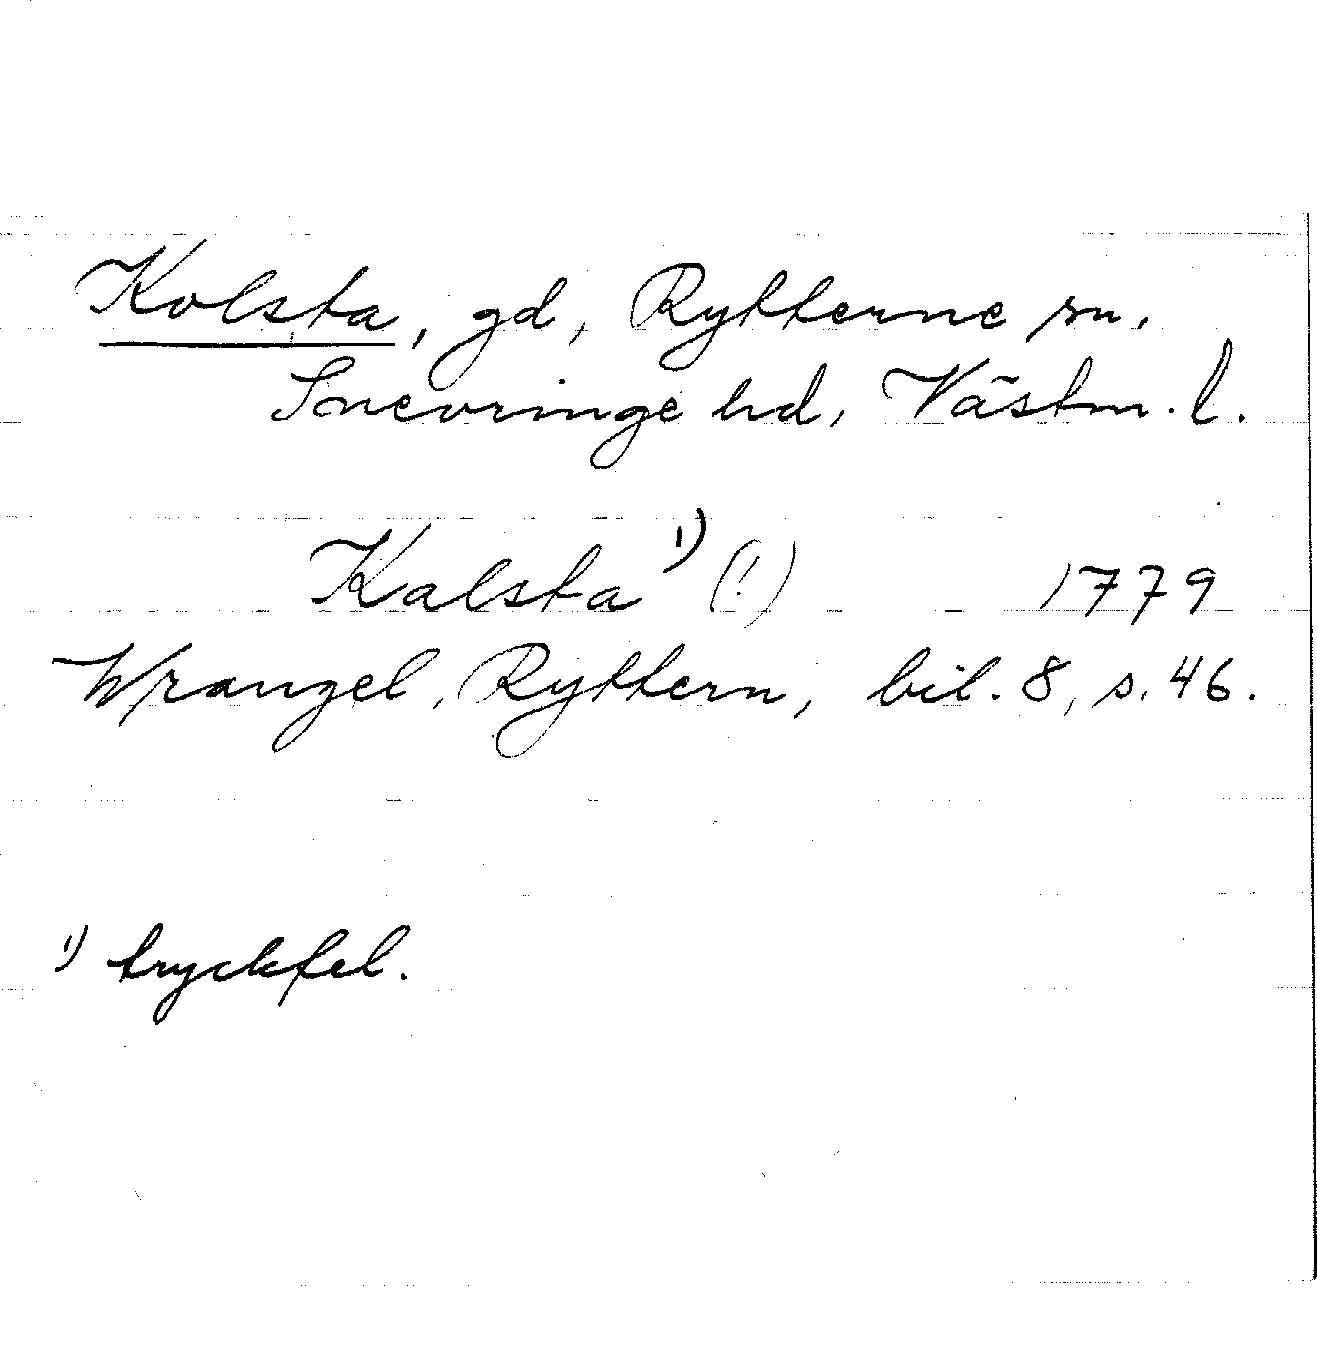 Kolsta, gd, Rytterne sn,
Snevringe hd, Västm. l.
Kalsta ¹) (!) 1779
Wrangel, Ryttern, bil. 8, s. 46.
¹) tryckfel.